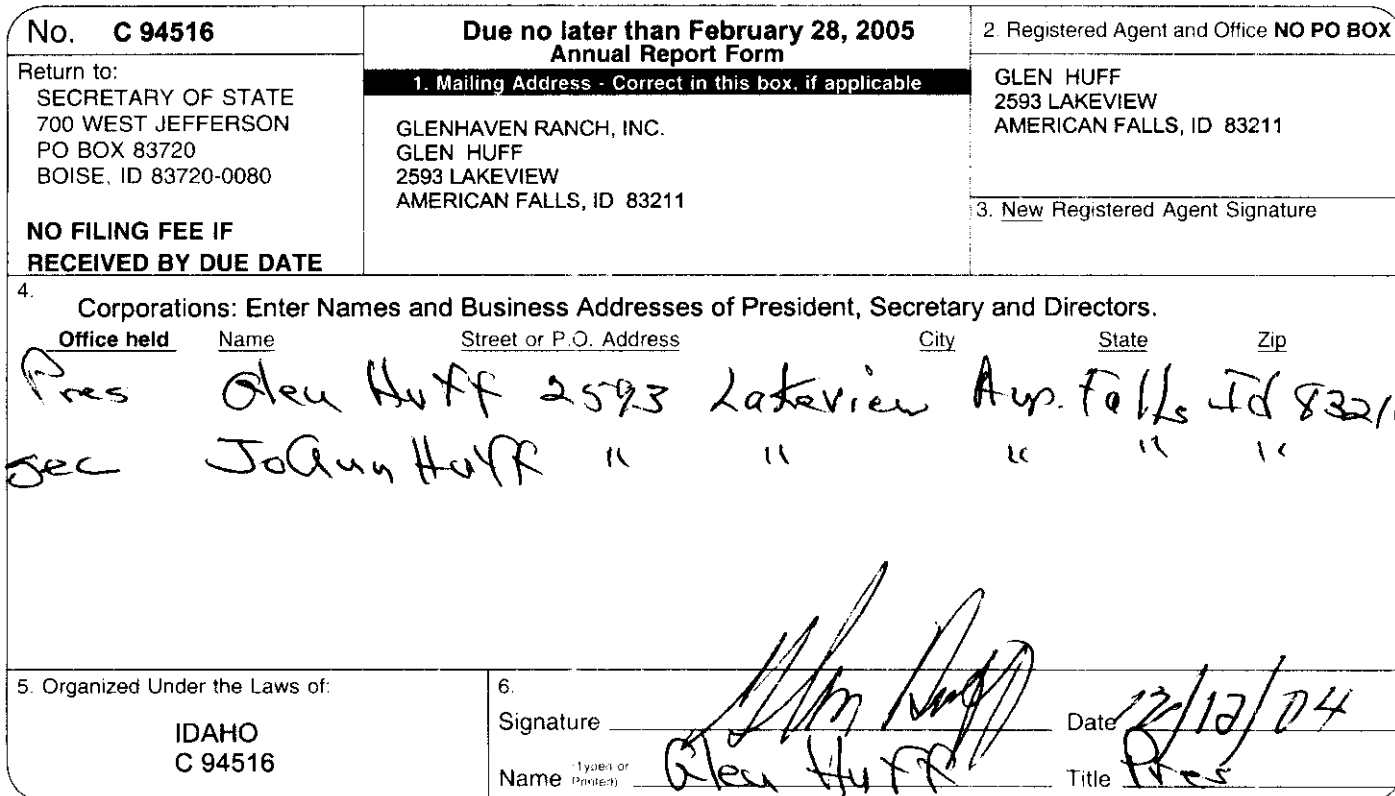 No. C 94516
Return to:
SECRETARY OF STATE
700 WEST JEFFERSON
PO BOX 83720
BOISE, ID 83720-0080
NO FILING FEE IF
RECEIVED BY DUE DATE
Due no later than February 28, 2005
Annual Report Form
1. Mailing Address - Correct in this box, if applicable
GLENHAVEN RANCH, INC.
GLEN HUFF
2593 LAKEVIEW
AMERICAN FALLS, ID 83211
2. Registered Agent and Office NO PO BOX
GLEN HUFF
2593 LAKEVIEW
AMERICAN FALLS, ID 83211
3. New Registered Agent Signature
4. Corporations: Enter Names and Business Addresses of President, Secretary and Directors.
Office held Name Street or P.O. Address City State Zip
Pres Glen Huff 2593 Lakeview Am. Falls Id 8321
Sec JoAnn Huff " " " " "
5. Organized Under the Laws of:
IDAHO
C 94516
6.
Signature Glen Huff Date 12/12/04
Name (Typed or Printed) Glen Huff Title Pres